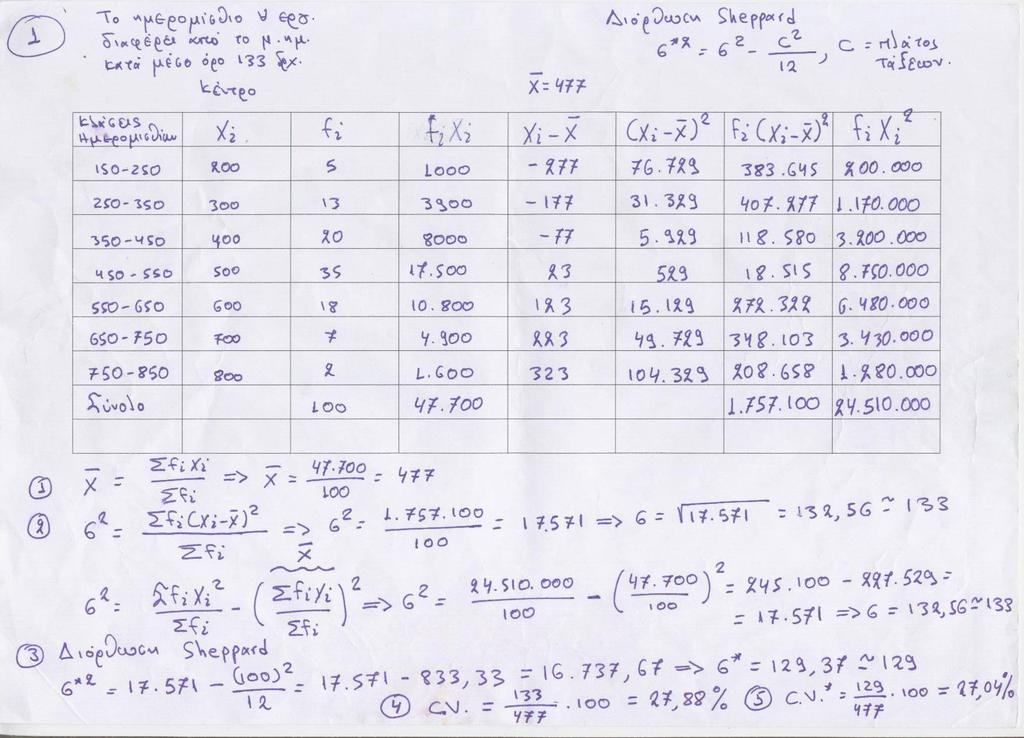 1
Το ημερομίσθιο ∀ εργ.
διαφέρει από το μ.ημ.
κατά μέσο όρο 133 δρχ.
Διόρθωση Sheppard
σ*² = σ² - C²/12, C = πλάτος τάξεων.
κέντρο
x̄ = 477
Κλάσεις Ημερομισθίων Xi fi fiXi Xi-x̄ (Xi-x̄)² fi(Xi-x̄)² fiXi²
150-250 200 5 1000 -277 76.729 383.645 200.000
250-350 300 13 3900 -177 31.329 407.277 1.170.000
350-450 400 20 8000 -77 5.929 118.580 3.200.000
450-550 500 35 17.500 23 529 18.515 8.750.000
550-650 600 18 10.800 123 15.129 272.322 6.480.000
650-750 700 7 4.900 223 49.729 348.103 3.430.000
750-850 800 2 1.600 323 104.329 208.658 1.280.000
Σύνολο 100 47.700 1.757.100 24.510.000
① x̄ = ΣfiXi/Σfi => x̄ = 47.700/100 = 477
② σ² = Σfi(Xi-x̄)²/Σfi => σ² = 1.757.100/100 = 17.571 => σ = √17.571 = 132,56 ≃ 133
x̄
σ² = ΣfiXi²/Σfi - (ΣfiXi/Σfi)² => σ² = 24.510.000/100 - (47.700/100)² = 245.100 - 227.529 =
= 17.571 => σ = 132,56 ≃ 133
③ Διόρθωση Sheppard
σ*² = 17.571 - (100)²/12 = 17.571 - 833,33 = 16.737,67 => σ* = 129,37 ≃ 129
④ C.V. = 133/477 · 100 = 27,88% ⑤ C.V.* = 129/477 · 100 = 27,04%